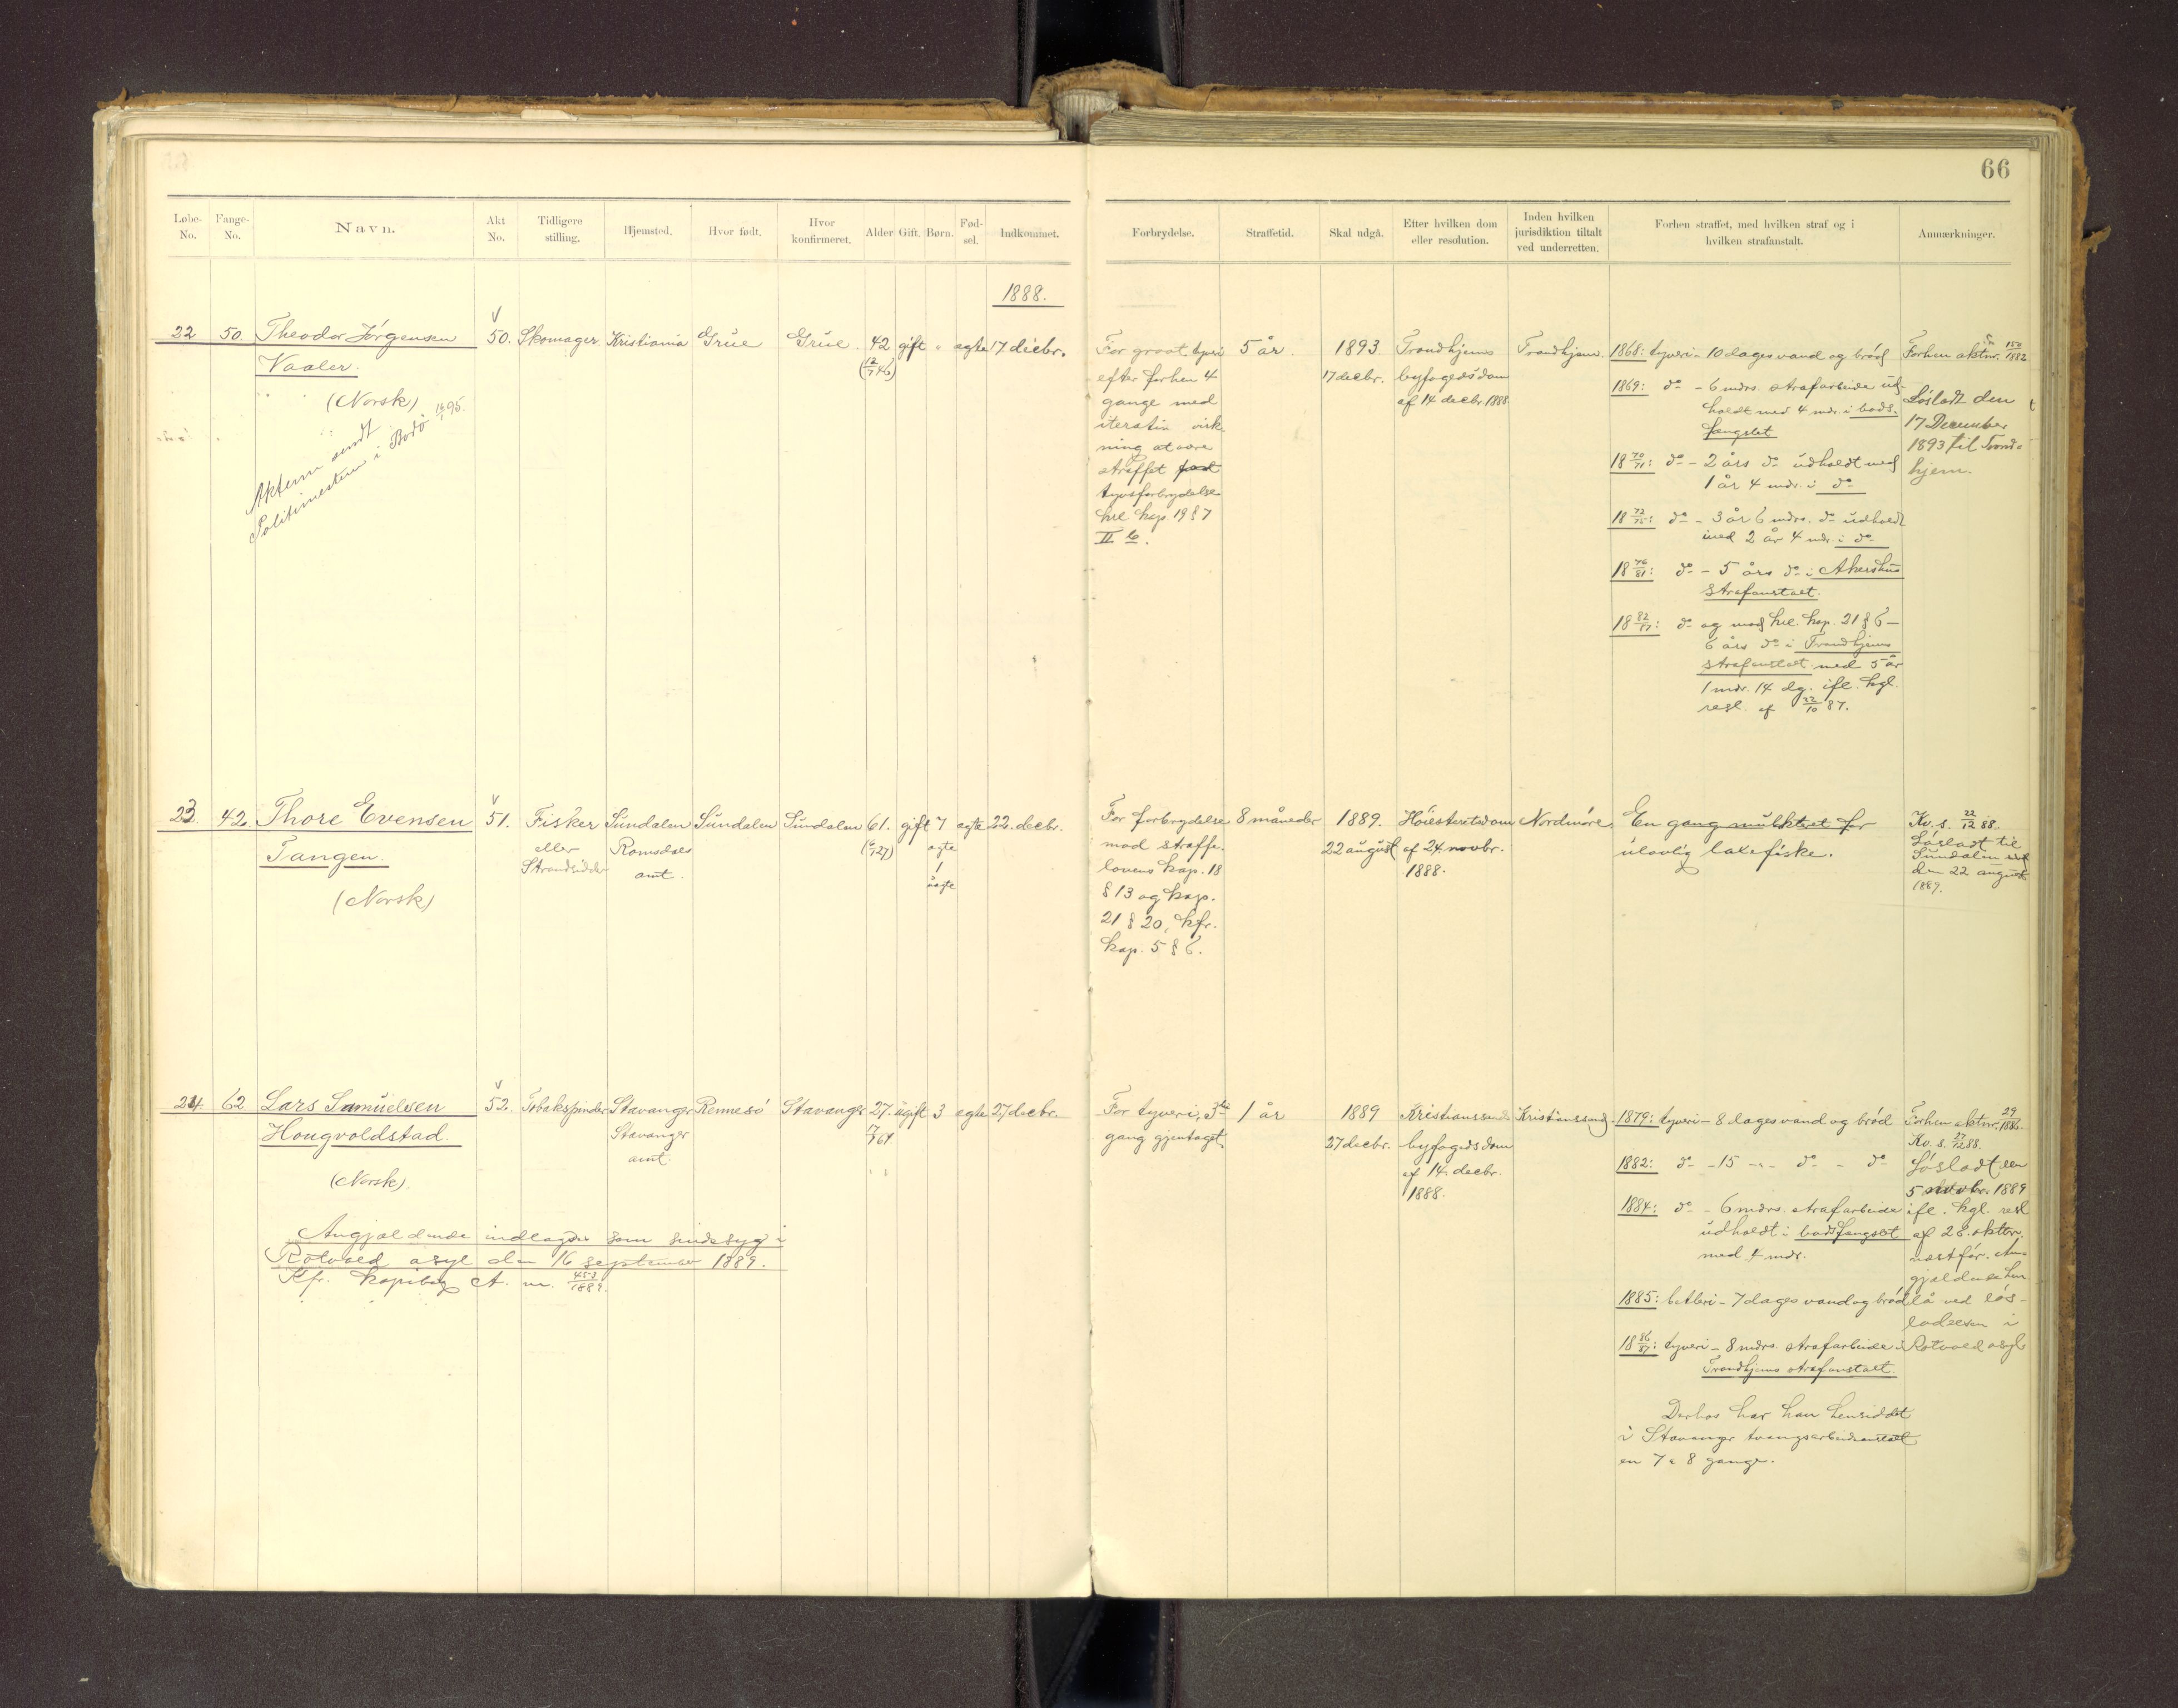 66
Løbe-No. Fange-No. Navn. Akt No. Tidligere stilling. Hjemsted. Hvor født. Hvor konfirmeret. Alder Gift. Børn. Fød-sel. Indkommet.
Forbrydelse. Straffetid. Skal udgå. Efter hvilken dom eller resolution. Inden hvilken jurisdiktion tiltalt ved underretten. Forhen straffet, med hvilken straf og i hvilken strafanstalt. Anmærkninger.
1888.
22 50. Theodor Jørgensen 50. Skomager Kristiania Grue Grue 42 gift " ægte 17 decbr.
Vaaler.
(12/7 46)
(Norsk)
Akterne sendt
Politimesteren i Bodø 95.
For groot tyveri
efter forhen 4
gange med
iterativ virk-
ning at være
straffet for
tyvsforbrydelse
krl kap. 19 § 7
II b.
5 år.
1893
17 decbr.
Trondhjems
byfogedsdom
af 14 decbr. 1888
Trondhjem.
1868: tyveri - 10 dages vand og brød
1869: do - 6 mdrs. strafarbeide ud-
holdt med 4 mdr. i bods-
fængslet
18 70/71: do - 2 års do udholdt med
1 år 4 mdr. i do
18 72/75: do - 3 år 6 mdrs. do udholdt
med 2 år 4 mdr. i do
18 76/81: do - 5 års do i Akershus
strafanstalt.
18 82/87: do og mod krl. kap. 21 § 6 -
6 års do i Trondhjems
strafanstalt med 5 år
1 mdr. 14 dg. ifl. kgl.
resl. af 22/10 87.
Forhen aktnr. 150/1882
Løsladt den
17 December
1893 til Trond-
hjem.
23. 42. Thore Evensen 51. Fisker Sundalen Sundalen Sundalen 61. gift 7 ægte 22. decbr.
Tangen.
eller
Strandsidder
Romsdals
amt.
(6/7 27)
ægte
1
uægte
(Norsk)
For forbrydelse
mod straffe-
lovens kap. 18
§ 13 og kap.
21 § 20, kfr.
kap. 5 § 6.
8 måneder
1889.
22 august
Høiesteretsdom
af 24. novbr.
1888.
Nordmøre.
En gang mulkteret for
ulovlig laxefiske.
Kv. s. 22/12 88.
Løsladt til
Sundalen
den 22 august
1889.
24. 62 Lars Samuelsen 52. Tobakspinder Stavanger Rennesø Stavanger 27. ugift 3 ægte 27 decbr.
Hougvoldstad.
Stavanger
amt.
61
(Norsk).
Angjældende indlagdes som sindssyg i
Rotvold asyl den 16 september 1889.
Kfr. kopibog A. nr. 453/1889.
For tyveri, 3die
gang gjentaget.
1 år
1889
27 decbr.
Kristianssunds
byfogedsdom
af 14. decbr.
1888.
Kristianssund.
1879: tyveri - 8 dages vand og brød
1882: do - 15 -"- do - do
1884: do - 6 mdrs. strafarbeide
udholdt i bodsfængslet
med 4 mdr.
1885: betleri - 7 dages vand og brød
18 86/87: tyveri - 8 mdrs. strafarbeide i
Trondhjems strafanstalt.
Derhos har han hensiddet
i Stavanger tvangsarbeidsanstalt
en 7 a 8 gange.
Forhen aktnr. 29/1886.
Kv. s. 27/12 88.
Løsladt den
5 novbr. 1889
ifl. kgl. resl
af 28. oktbr.
næstfør. An-
gjældende hen-
lå ved løs-
ladelsen i
Rotvold asyl